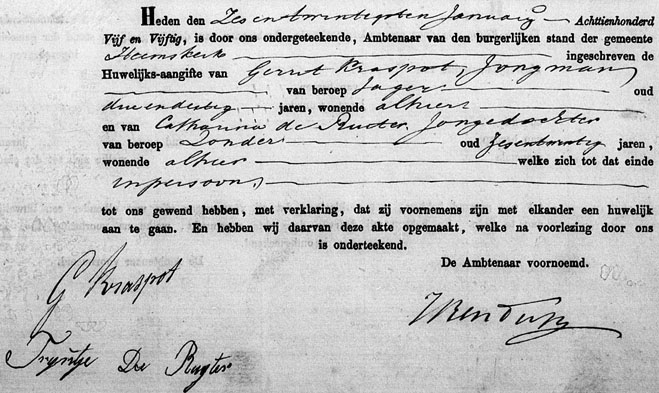 Heden den Zesentwintigsten January Achttienhonderd
Vijf en Vijftig, is door ons ondergeteekende, Ambtenaar van den burgerlijken stand der gemeente
Heemskerk ingeschreven de
Huwelijks-aangifte van Gerrit Kraspot, Jongman,
van beroep Jager oud
drieendertig jaren, wonende alhier
en van Catharina de Ruiter Jongedochter
van beroep Zonder oud Zesentwintig jaren,
wonende alhier welke zich tot dat einde
in persoon,
tot ons gewend hebben, met verklaring, dat zij voornemens zijn met elkander een huwelijk
aan te gaan. En hebben wij daarvan deze akte opgemaakt, welke na voorlezing door ons
is onderteekend.
De Ambtenaar voornoemd.
G Kraspot
Tryntje De Ruyter